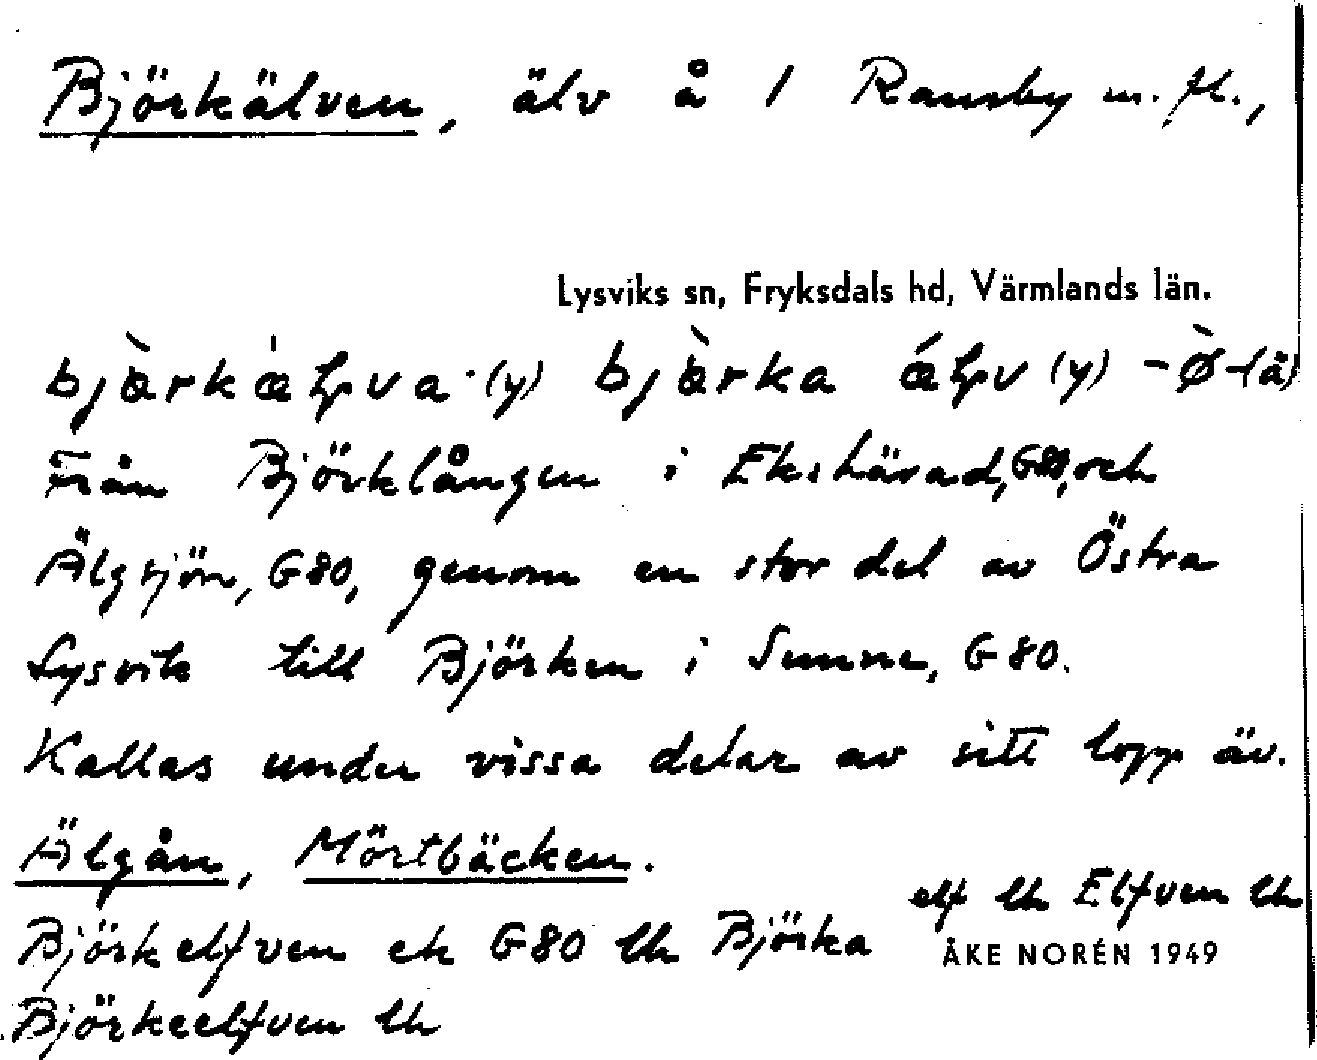 Björkälven, älv å 1 Ransby m. fl.,
Lysviks sn, Fryksdals hd, Värmlands län.
Från Björklången i Ekshärad, G80, och
Älgsjön, G80, genom en stor del av Östra
Lysvik till Björken i Sunne, G80.
Kallas under vissa delar av sitt lopp äv.
Älgån, Mörtbäcken.
Björkelfven ek G80 lh Björka elf lh Elfven lh
ÅKE NORÉN 1949
Björkeelfven lh